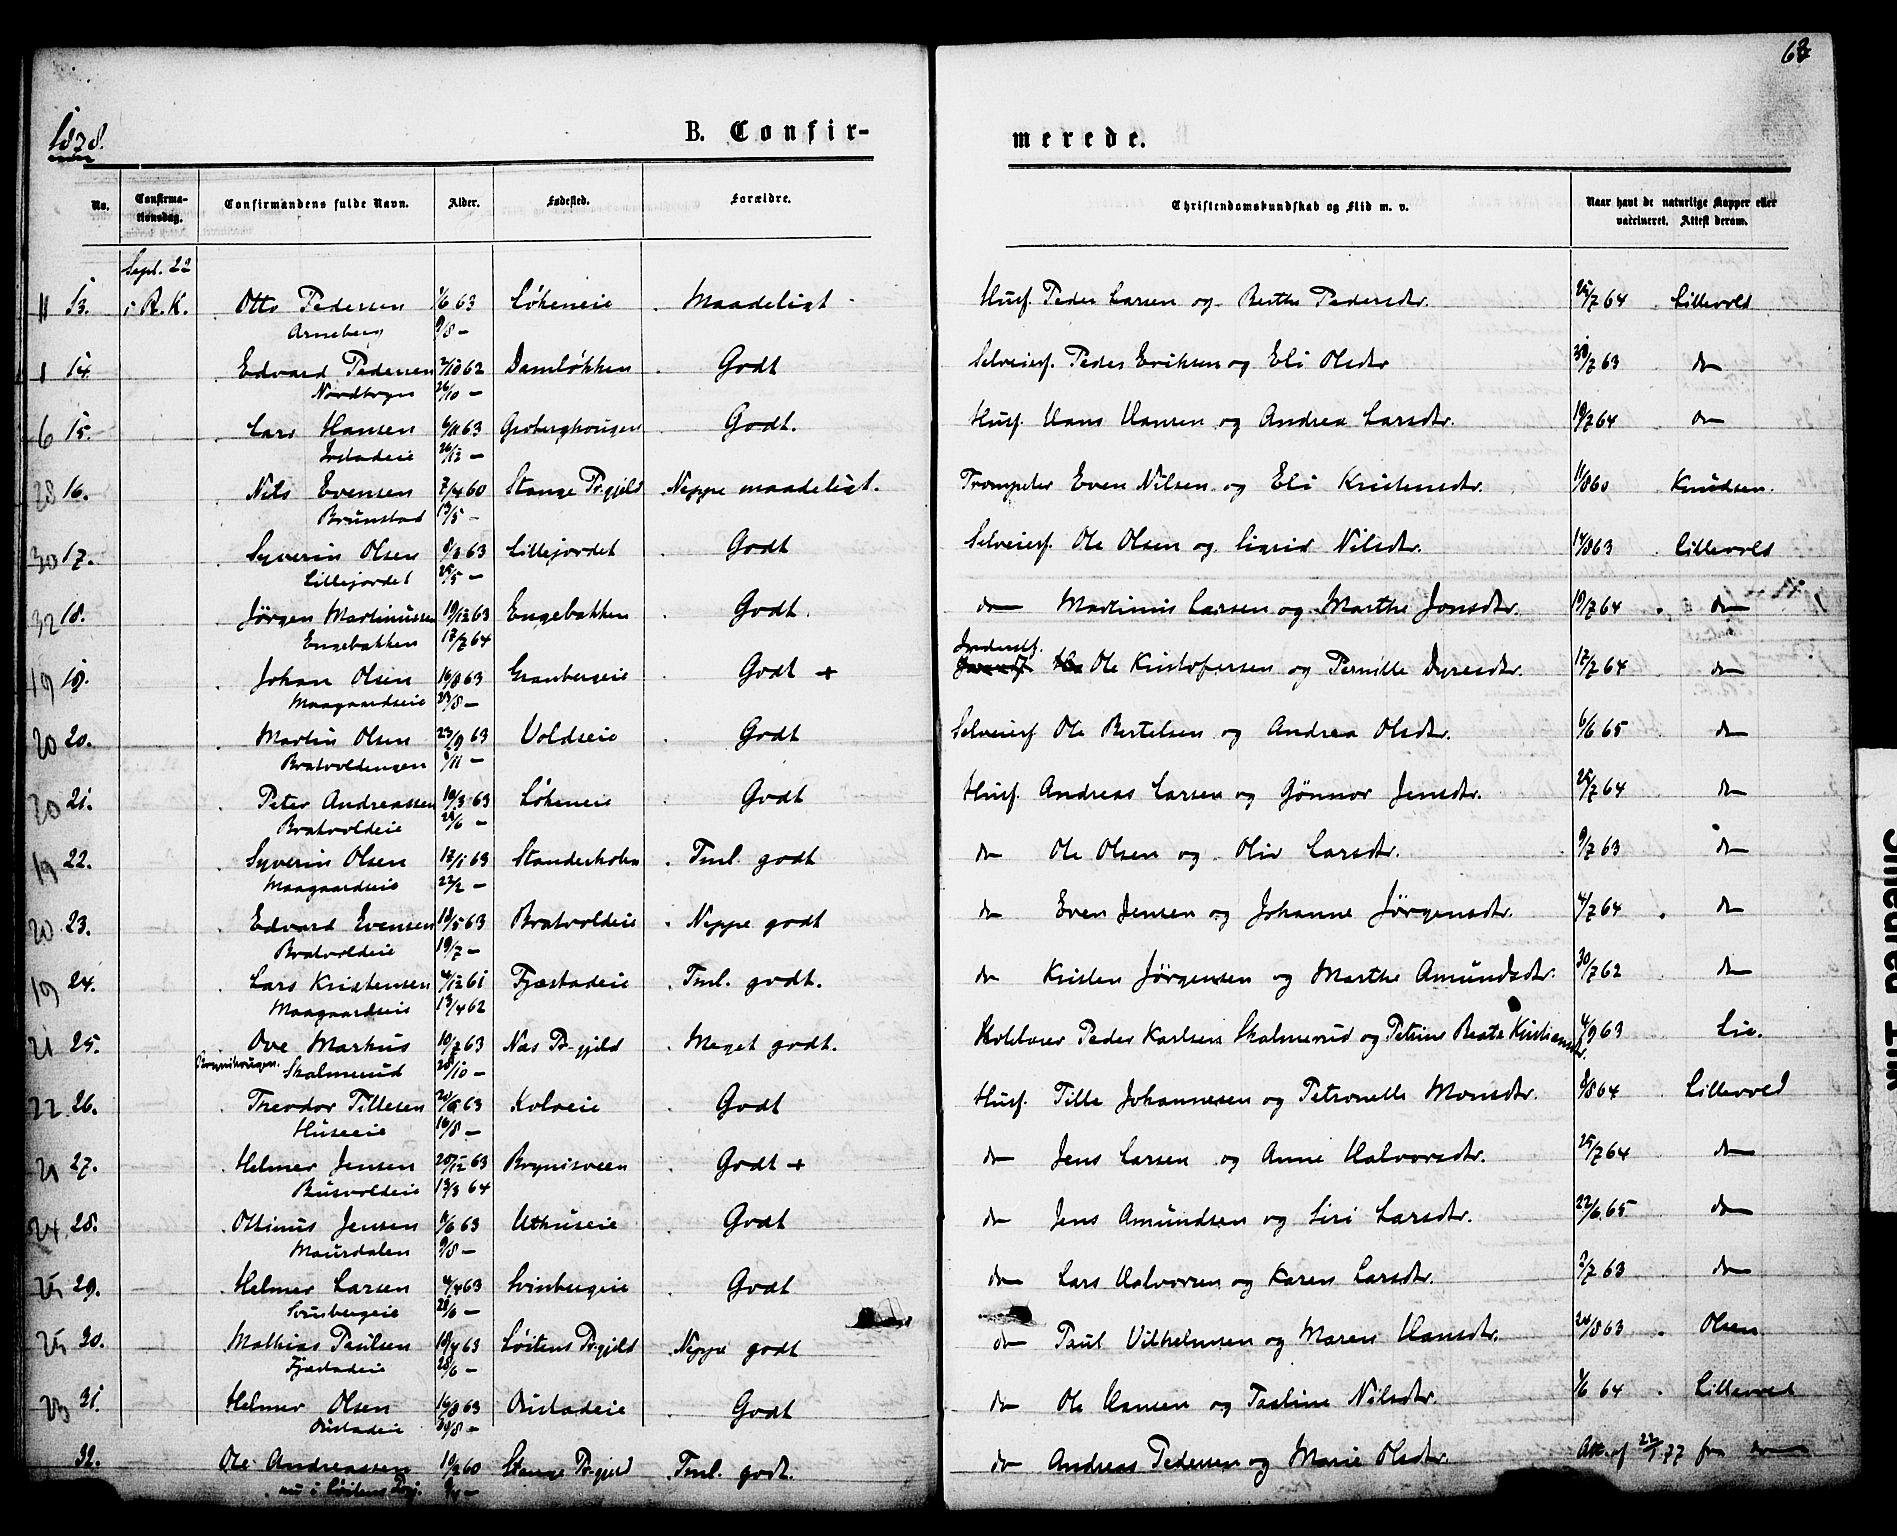 63
1878.
B. Confir-
merede.
No.
Confirma-
tionsdag.
Confirmandens fulde Navn.
Alder.
Fødested.
Forældre.
Christendomskundskab og Flid m. v.
Naar havt de naturlige Kopper eller
vaccineret. Attest derom.
Sept. 22
11 13. i R.K. Otto Pedersen 1/6 63 Løkeneie Maadeligt Husf. Peder Larsen og Berthe Pedersdtr. 25/7 64 Lillevold
Arneberg 9/8 —
1 14. Edvard Pedersen 2/10 62 Damløkken Godt Selveierf. Peder Eriksen og Eli Olsdtr 30/7 63 do
Nordbryn 26/10 —
6 15. Lars Hansen 6/11 63 Grøberghougen Godt. Husf. Hans Hansen og Andrea Larsdtr. 19/7 64 do
26/12 —
28 16. Nils Evensen 7/4 60 Stange Pr.gjeld Neppe maadeligt. Trompeter Even Nilsen og Eli Kristensdtr. 11/8 60 Knudsen.
Brunstad 13/5 —
30 17. Syverin Olsen 8/3 63 Lillejordet Godt Selveierf. Ole Olsen og Sigrid Nilsdtr. 14/8 63 Lillevold
Lillejordet 25/5 —
32 18. Jörgen Martinussen 19/12 63 Engebakken Godt. do Martinus Larsen og Marthe Jonsdtr. 19/7 64 do
Engebakken 17/2 64
19 19. Johan Olsen 16/8 63 Granbergeie Godt + Inderstf. Ole Kristofersen og Pernille Dyresdtr. 12/7 64 do
Maagaardseie 23/8 —
20 20. Martin Olsen 23/9 63 Voldseie Godt Selveierf Ole Bertelsen og Andrea Olsdtr. 6/6 65 do
Bratvoldengen 8/11 —
20 21. Peter Andreassen 10/3 63 Løkeneie Godt Husf. Andreas Larsen og Gönnor Jensdtr. 25/7 64 do
Bratvoldeie 21/6 —
19 22. Syverin Olsen 12/1 63 Standerholen Tml. godt do Ole Olsen og Oliv Larsdtr. 9/7 63 do
Maagaardseie 22/2 —
20 23. Edvard Evensen 18/5 63 Bratvoldeie Neppe godt do Even Jensen og Johanne Jörgensdtr. 4/7 64 do
Bratvoldeie 19/7 —
19 24. Lars Kristensen 4/12 61 Fjæstadeie Tml. godt. do Kristen Jörgensen og Marthe Amundsdtr. 30/7 62 do
Maagaardseie 13/4 62
21 25. Ove Markus 10/7 63 Næs Pr.gjeld Meget godt. Skolelærer Peder Karlsen Skalmerud og Petrine Beate Kristiansdtr. 4/9 63 Lie.
Skalmerud 28/10 —
22 26. Theodor Tillesen 20/6 63 Kolveie Godt Husf. Tille Johannesen og Petronelle Monsdtr. 8/8 64 Lillevold
Huseeie 16/8 —
21 27. Helmer Jensen 20/12 63 Brynisveen Godt + do Jens Larsen og Anne Halvorsdtr. 25/7 64 do
Busvoldeie 13/3 64
24 28. Ottinus Jensen 11/6 63 Uthuseie Godt do Jens Amundsen og Siri Larsdtr. 22/6 65 do
Maursdalen 9/8 —
25 29. Helmer Larsen 4/4 63 Svinbergeie Godt do Lars Halvorsen og Karen Larsdtr. 2/7 63 do
Svinbergeie 28/6 —
25 30. Mathias Paulsen 18/4 63 Löitens Pr.gjeld Neppe godt do Paul Vilhelmsen og Maren Hansdtr. 20/8 63 Olsen
Fjæstadeie 28/6 —
23 31. Helmer Olsen 16/8 63 Ouistadeie Godt do Ole Hansen og Pauline Nilsdtr. 1/6 64 Lillevold
Ouistadeie 30/8 —
32. Ole Andreassen 10/2 60 Stange Pr.gjeld Tml. godt. do Andreas Pedersen og Marie Olsdtr. Att. af 22/1 77 fra do
nu i Löitens Prgj.